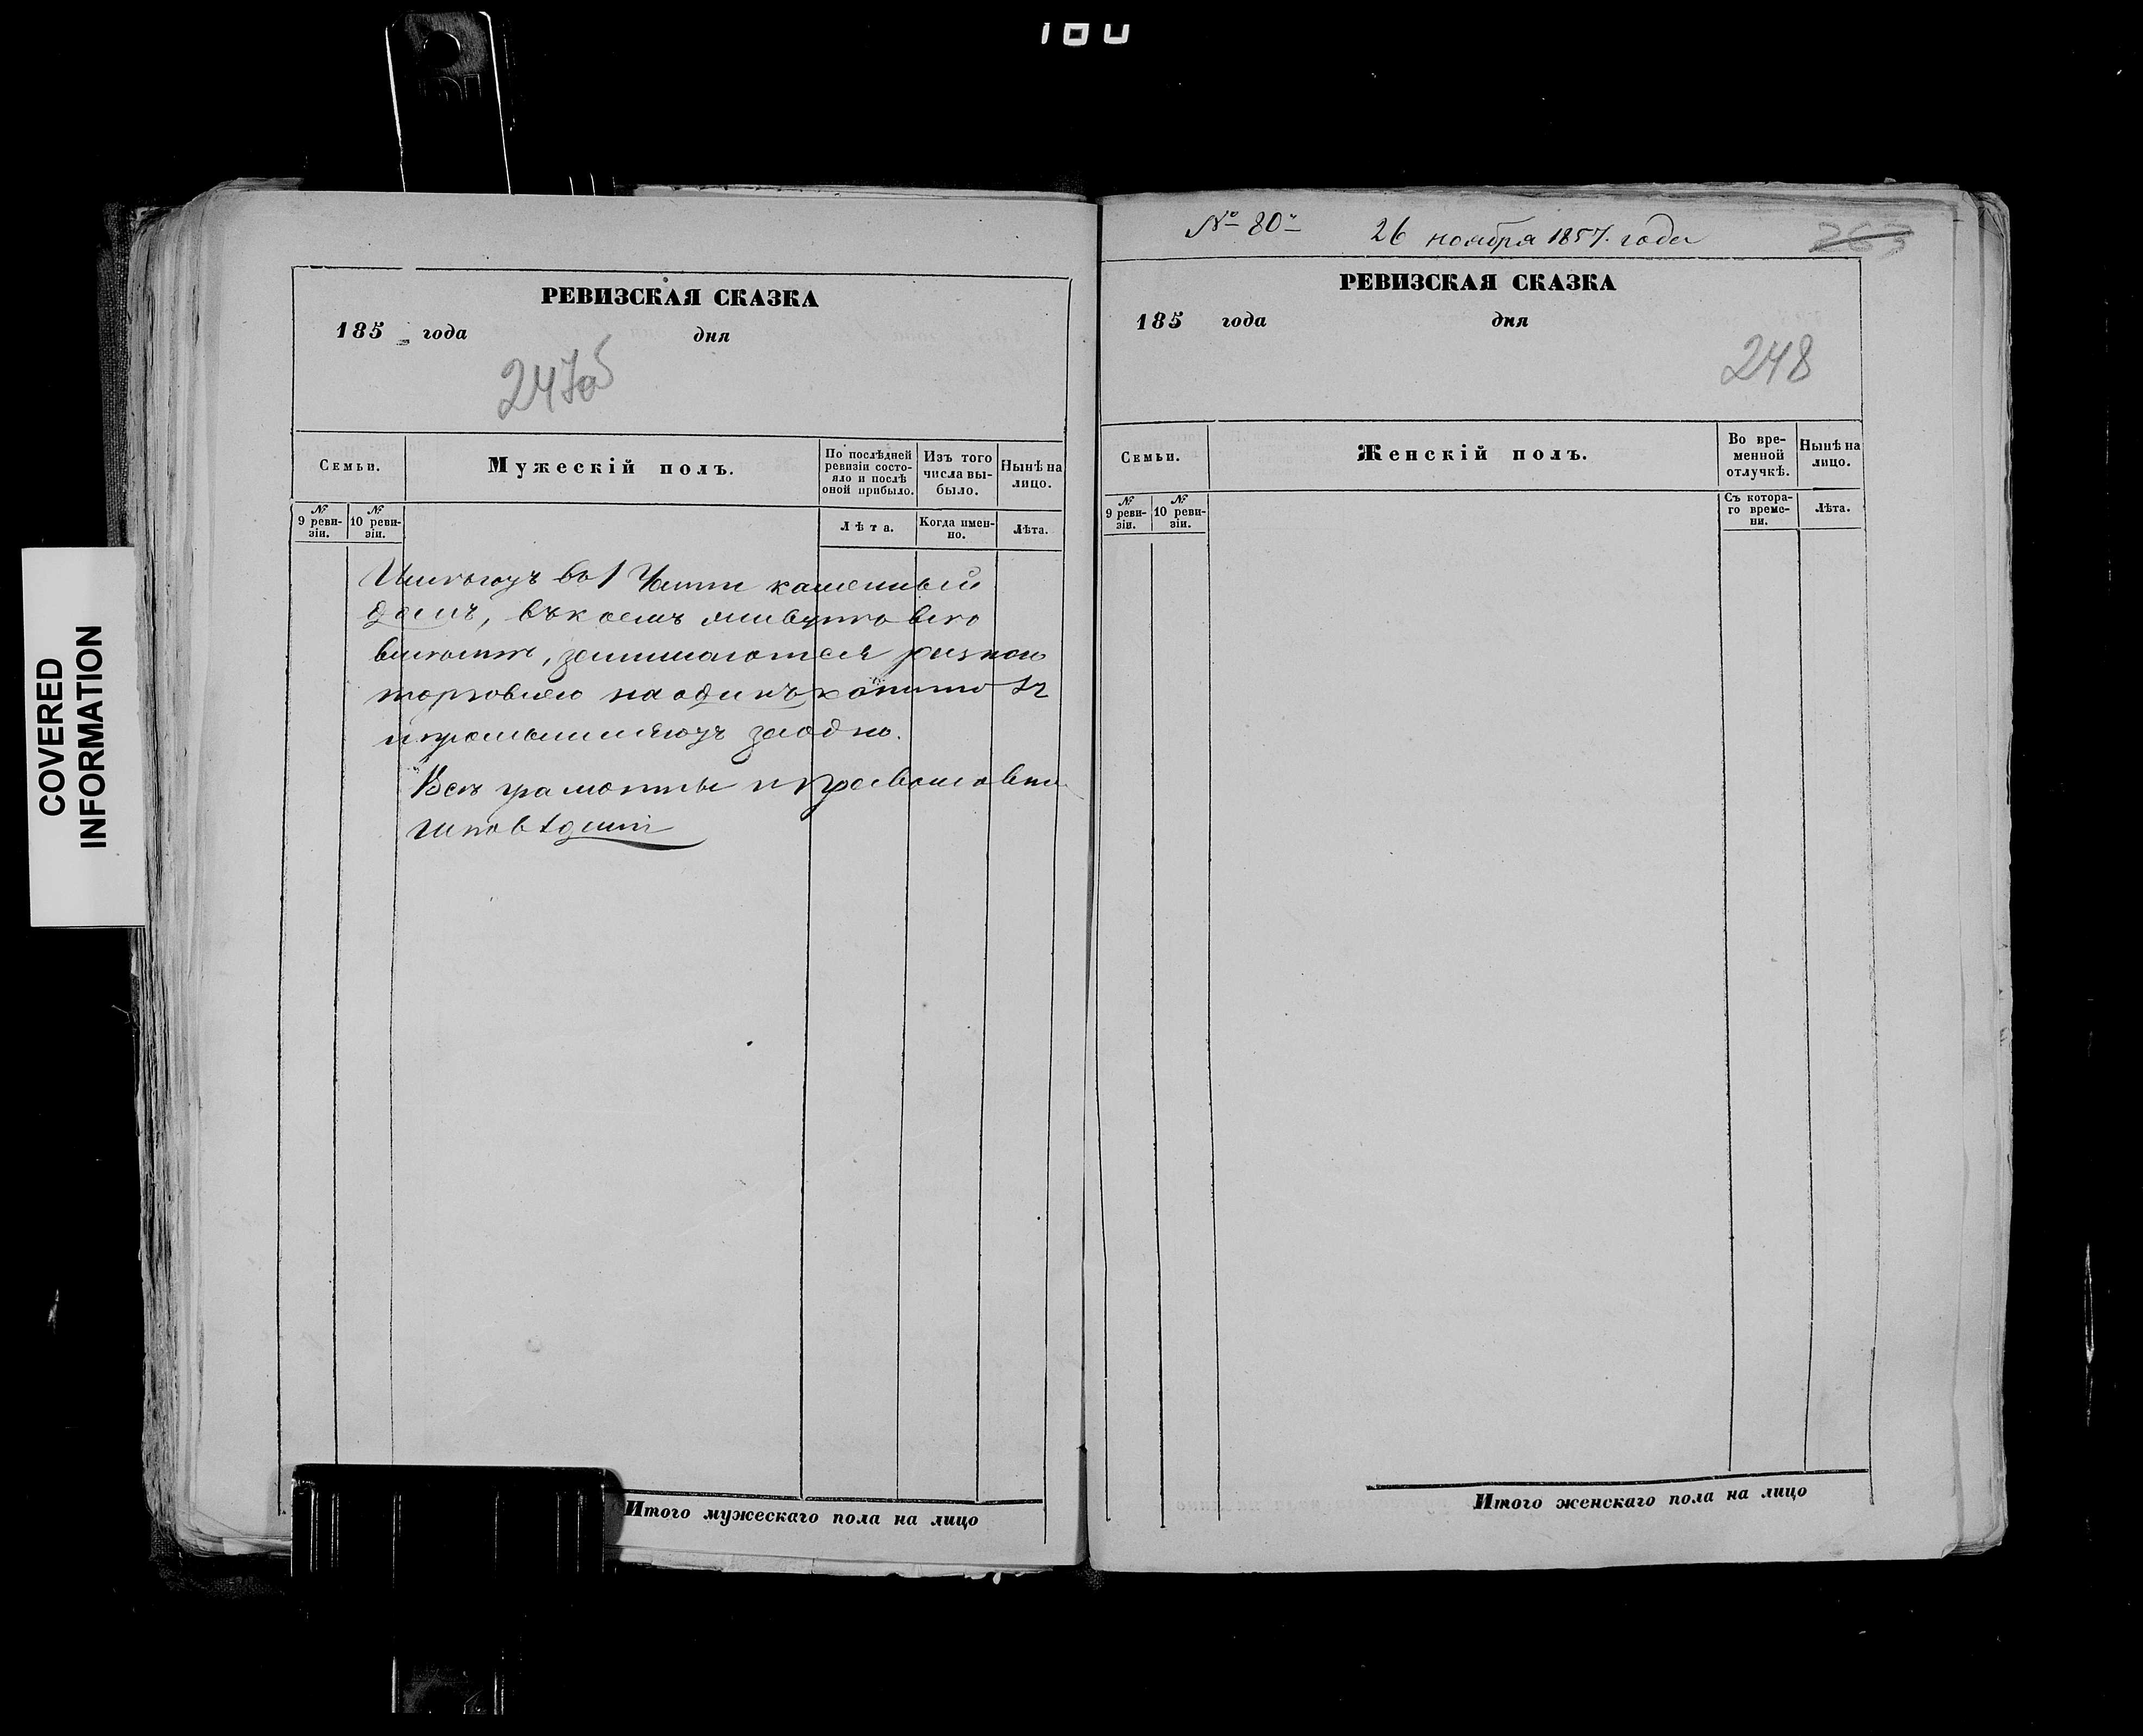 180
COVERED
INFORMATION
РЕВИЗСКАЯ СКАЗКА
185 года дня
247об
Семьи.
Мужескій полъ.
По послѣдней ревизіи состояло и послѣ оной прибыло.
Изъ того числа выбыло.
Нынѣ на лицо.
№ 9 ревизіи.
№ 10 ревизіи.
Лѣта.
Когда именно.
Лѣта.
Имѣютъ во 1 Части каменный
домъ, въ коемъ живутъ все
вмѣстѣ, занимаются разною
торговлею на одинъ капиталъ
и промышляютъ заодно.
Всѣ грамотны и Православна
исповѣданія
Итого мужескаго пола на лицо
№ 80й 26 ноября 1857. года
263
РЕВИЗСКАЯ СКАЗКА
185 года дня
248
Семьи.
Женскій полъ.
Во временной отлучкѣ.
Нынѣ на лицо.
№ 9 ревизіи.
№ 10 ревизіи.
Съ котораго времени.
Лѣта.
Итого женскаго пола на лицо